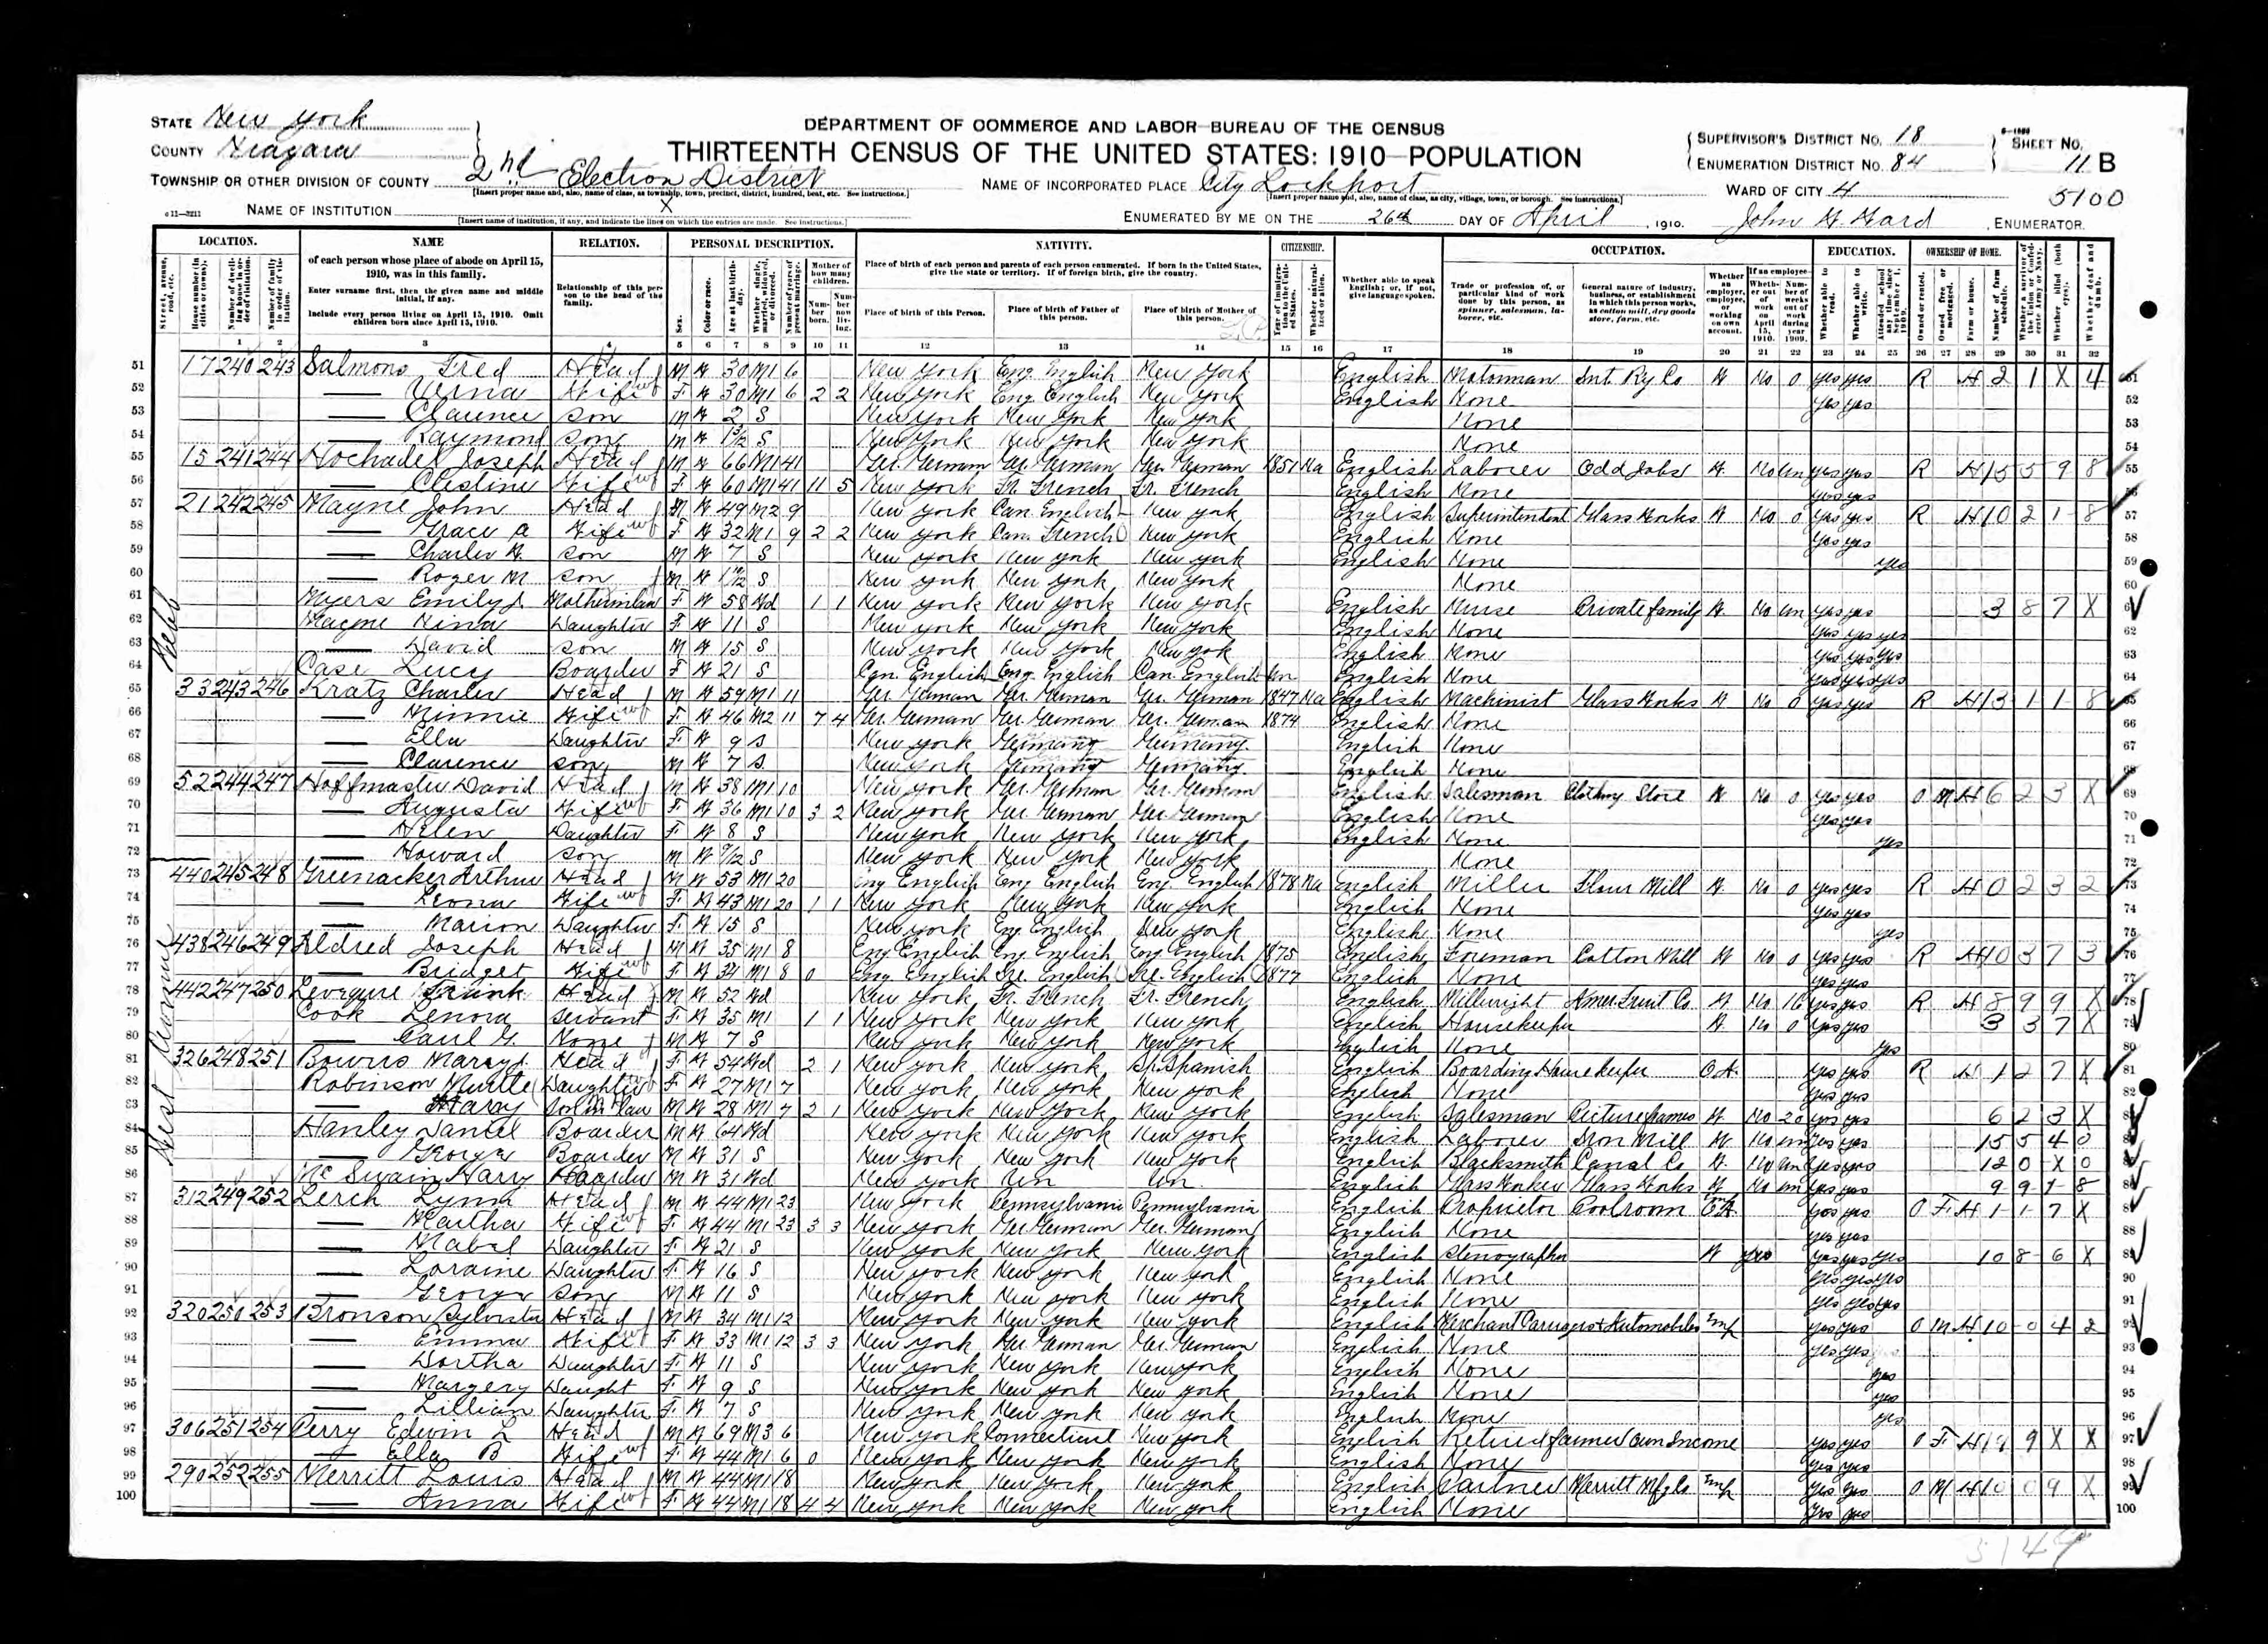 STATE New York
COUNTY Niagara
TOWNSHIP OR OTHER DIVISION OF COUNTY 2nd Election District
[Insert proper name and, also, name of class, as township, town, precinct, district, hundred, beat, etc. See instructions.]
NAME OF INSTITUTION X
[Insert name of institution, if any, and indicate the lines on which the entries are made. See instructions.]
DEPARTMENT OF COMMERCE AND LABOR-BUREAU OF THE CENSUS
THIRTEENTH CENSUS OF THE UNITED STATES: 1910-POPULATION
NAME OF INCORPORATED PLACE City Lockport
[Insert proper name and, also, name of class, as city, village, town, or borough. See instructions.]
ENUMERATED BY ME ON THE 26th DAY OF April, 1910.
ENUMERATOR.
SUPERVISOR'S DISTRICT No. 18
ENUMERATION DISTRICT No. 84
SHEET No. 11 B
WARD OF CITY 4
5100
LOCATION. NAME RELATION. PERSONAL DESCRIPTION. NATIVITY. CITIZENSHIP. OCCUPATION. EDUCATION. OWNERSHIP OF HOME.
of each person whose place of abode on April 15, 1910, was in this family.
Enter surname first, then the given name and middle initial, if any.
Include every person living on April 15, 1910. Omit children born since April 15, 1910.
Relationship of this person to the head of the family.
Place of birth of each person and parents of each person enumerated. If born in the United States, give the state or territory. If of foreign birth, give the country.
Place of birth of this Person. Place of birth of Father of this person. Place of birth of Mother of this person.
Whether able to speak English; or, if not, give language spoken.
Trade or profession of, or particular kind of work done by this person, as spinner, salesman, laborer, etc.
General nature of industry, business, or establishment in which this person works, as cotton mill, dry goods store, farm, etc.
1 2 3 4 5 6 7 8 9 10 11 12 13 14 15 16 17 18 19 20 21 22 23 24 25 26 27 28 29 30 31 32
51 17 240 243 Salmons Fred Head M W 30 M1 6 New York Eng. English New York English Motorman Int. Ry Co W No 0 yes yes R H 2 1 X 4
52 Verna Wife F W 30 M1 6 2 2 New York Eng. English New York English None yes yes
53 Clarence Son M W 2 S New York New York New York None
54 Raymond Son M W S New York New York New York None
55 15 241 244 Hochadel Joseph Head M W 66 M1 41 Ger. German Ger. German Ger. German 1851 Na English Laborer Odd Jobs W No un yes yes R H 15 5 9 8
56 Wife F W 60 M1 41 11 5 New York Fr. French Fr. French English None yes yes
57 21 242 245 Mayne John Head M W 49 M2 9 New York Can. English New York English Superintendent Glass Works W No 0 yes yes R H 10 2 1 8
58 Grace A Wife F W 32 M1 9 2 2 New York Can. French New York English None yes yes
59 Charles W. Son M W 7 S New York New York New York English None yes
60 Roger M Son M W S New York New York New York None
61 Myers Emily J. Motherinlaw F W 58 Wd 1 1 New York New York New York English Nurse Private family W No un yes yes 3 8 7 X
62 Mayne Nina Daughter F W 11 S New York New York New York English None yes yes yes
63 David Son M W 15 S New York New York New York English None yes yes yes
64 Case Lucy Boarder F W 21 S Can. English Eng. English Can. English un English None yes yes yes
65 33 243 246 Kratz Charles Head M W 59 M1 11 Ger. German Ger. German Ger. German 1847 Na English Machinist Glass Works W No 0 yes yes R H 13 1 1 8
66 Minnie Wife F W 46 M2 11 7 4 Ger. German Ger. German Ger. German 1874 English None
67 Ella Daughter F W 9 S New York Germany Germany English None
68 Clarence Son M W 7 S New York Germany Germany English None
69 52 244 247 Hoffmaster David Head M W 38 M1 10 New York Ger. German Ger. German English Salesman Clothing Store W No 0 yes yes O M H 6 2 3 X
70 Augusta Wife F W 36 M1 10 3 2 New York Ger. German Ger. German English None yes yes
71 Helen Daughter F W 8 S New York New York New York English None yes
72 Howard Son M W 9/12 S New York New York New York None
73 440 245 248 Greenacker Arthur Head M W 53 M1 20 Eng English Eng English Eng. English 1878 Na English Miller Flour Mill W No 0 yes yes R H 0 2 3 2
74 Leona Wife F W 43 M1 20 1 1 New York New York New York English None yes yes
75 Marion Daughter F W 15 S New York Eng. English New York English None yes
76 438 246 249 Aldred Joseph Head M W 35 M1 8 Eng English Eng English Eng English 1875 English Foreman Cotton Mill W No 0 yes yes R H 10 3 7 3
77 Bridget Wife F W 34 M1 8 0 Eng English Ire. English Ire. English 1877 English None yes yes
78 442 247 250 Frank Head M W 52 Wd New York Fr. French Fr. French English Millwright Amer. Fruit Co. W No 16 yes yes R H 8 9 9 X
79 Cook Lenora Servant F W 35 M1 1 1 New York New York New York English Housekeeper W No 0 yes yes 3 3 7 X
80 None M W 7 S New York New York New York English None yes
81 326 248 251 Bowers Mary J. Head F W 54 Wd 2 1 New York New York Sp. Spanish English Boarding Housekeeper OA yes yes R H 1 2 7 X
82 Robinson Daughter F W 27 M1 7 New York New York New York English None yes yes
83 Harry Son in law M W 28 M1 7 2 1 New York New York New York English Salesman Picture frames W No 20 yes yes 6 2 3 X
84 Hanley Daniel Boarder M W 64 Wd New York New York New York English Laborer Iron Mill W No un yes yes 15 5 4 0
85 George Boarder M W 31 S New York New York New York English Blacksmith Canal Co W No un yes yes 12 0 X 0
86 Mc Swain Harry Boarder M W 31 Wd New York Un Un English Glass Worker Glass Works W No un yes yes 9 9 1 8
87 312 249 252 Lerch Lyman Head M W 44 M1 23 New York Pennsylvania Pennsylvania English Proprietor Poolroom yes yes O F H 1 1 7 X
88 Martha Wife F W 44 M1 23 3 3 New York Ger German Ger. German English None yes yes
89 Mabel Daughter F W 21 S New York New York New York English Stenographer W yes yes yes yes 10 8 6 X
90 Loraine Daughter F W 16 S New York New York New York English None yes yes yes
91 George Son M W 11 S New York New York New York English None yes yes yes
92 320 250 253 Bronson Sylvester Head M W 34 M1 12 New York New York New York English Merchant Carriages & Automobiles Emp yes yes O M H 10 0 4 2
93 Emma Wife F W 33 M1 12 3 3 New York Ger. German Ger. German English None yes yes
94 Dortha Daughter F W 11 S New York New York New York English None yes
95 Margery Daught F W 9 S New York New York New York English None yes
96 Lillian Daughter F W 7 S New York New York New York English None yes
97 306 251 254 Perry Edwin L Head M W 69 M3 6 New York Connecticut New York English Retired farmer Own Income yes yes O F H 9 X X
98 Ella B Wife F W 44 M1 6 0 New York New York New York English None yes yes
99 290 252 255 Merritt Louis Head M W 44 M1 18 New York New York New York English Partner Merritt Mfg Co Emp yes yes O M H 10 0 9 X
100 Anna Wife F W 44 M1 18 4 4 New York New York New York English None yes yes